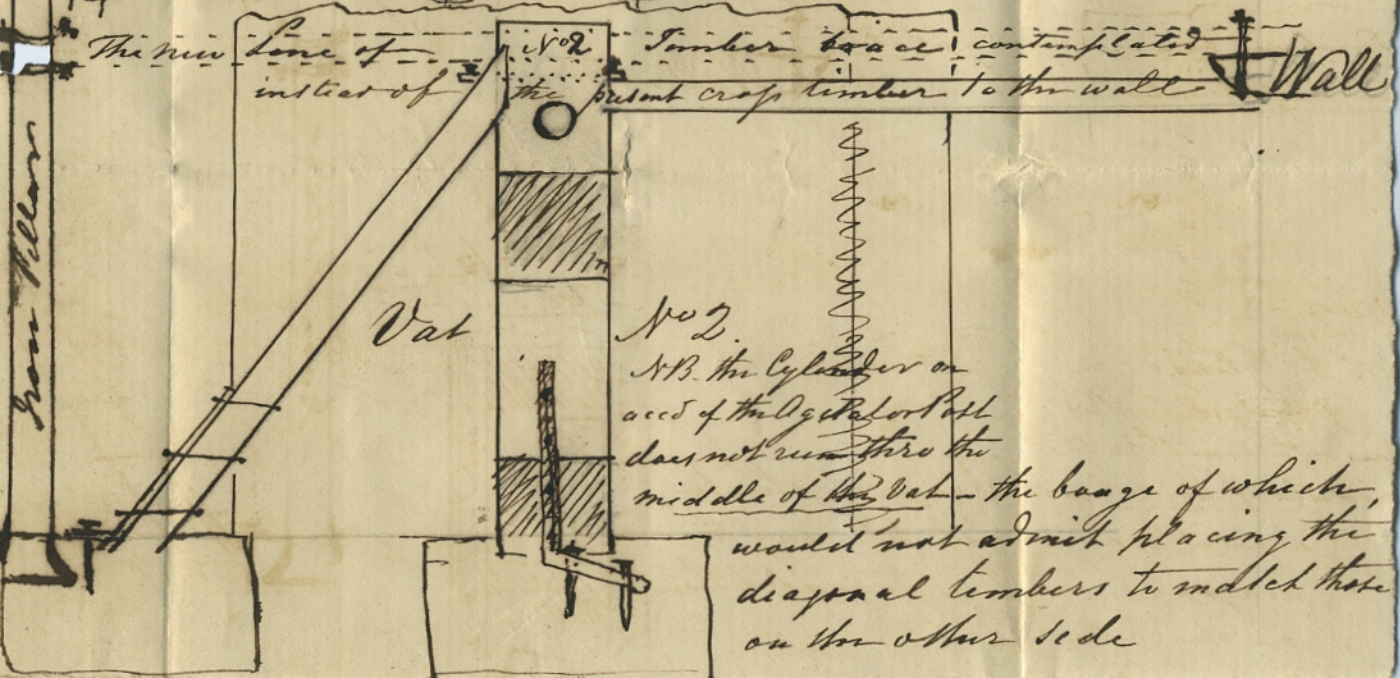 The new Line of No 2 Timber brace contemplated
instead of the present crop timber to the wall
Wall
Iron Pillars
Vat
No 2.
NB. the Cylinder on
accd of the Agitator Post
does not run thro the
middle of the Vat - the bouge of which,
would not admit placing the
diagonal timbers to match those
on the other side